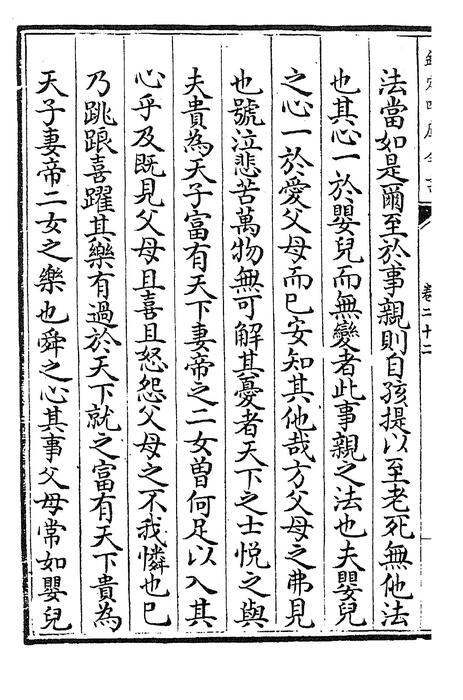 欽定四庫全書
卷二十二
法當如是爾至於事親則自孩提以至老死無他法
也其心一於嬰兒而無變者此事親之法也夫嬰兒
之心一於愛父母而已安知其他哉方父母之弗見
也號泣悲苦萬物無可解其憂者天下之士悅之與
夫貴為天子富有天下妻帝之二女曽何足以入其
心乎及既見父母且喜且怒怨父母之不我憐也已
乃跳踉喜躍其樂有過於天下就之富有天下貴為
天子妻帝二女之樂也舜之心其事父母常如嬰兒